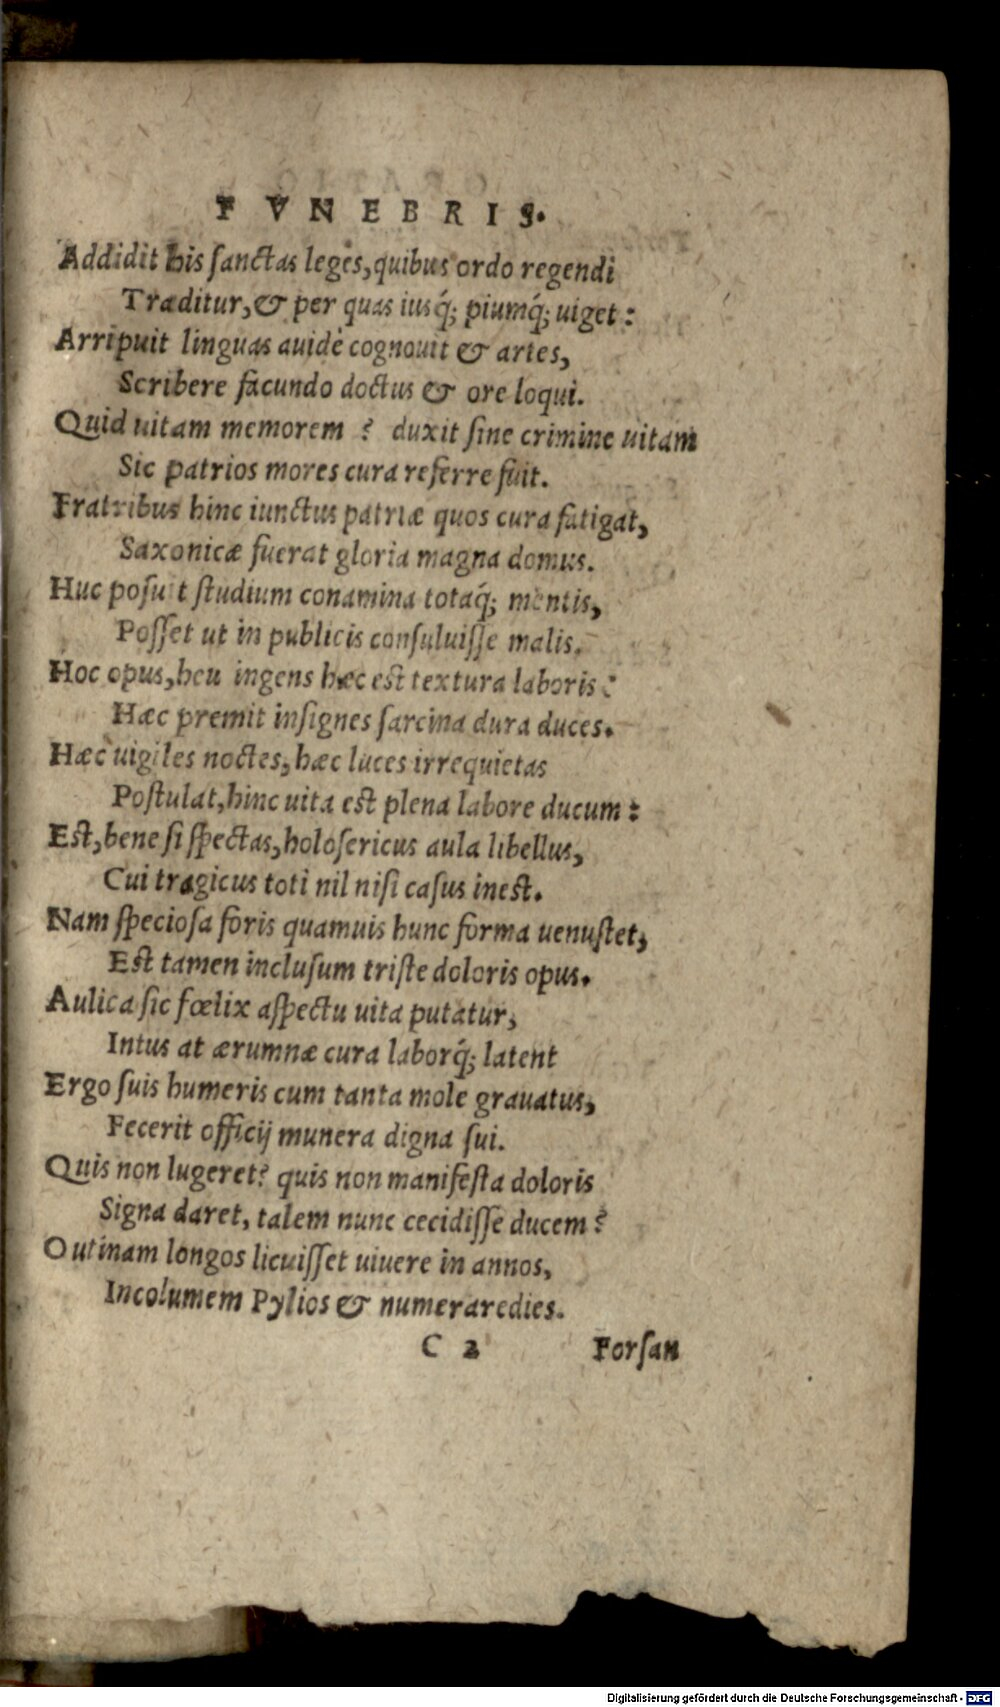 FVNEBRIS.
Addidit his sanctas leges, quibus ordo regendi
Traditur, & per quas iusq́; piumq́; uiget:
Arripuit linguas auidè cognouit & artes,
Scribere facundo doctus & ore loqui.
Quid uitam memorem ? duxit sine crimine uitam
Sic patrios mores cura referre fuit.
Fratribus hinc iunctus patriæ quos cura fatigat,
Saxonicæ fuerat gloria magna domus.
Huc posuit studium conamina totaq́; mentis,
Posset ut in publicis consuluisse malis.
Hoc opus, heu ingens hæc est textura laboris:
Hæc premit insignes sarcina dura duces.
Hæc uigiles noctes, hæc luces irrequietas
Postulat, hinc uita est plena labore ducum:
Est, bene si spectas, holosericus aula libellus,
Cui tragicus toti nil nisi casus inest.
Nam speciosa foris quamuis hunc forma uenustet,
Est tamen inclusum triste doloris opus.
Aulica sic fœlix aspectu uita putatur,
Intus at ærumnæ cura laborq́; latent
Ergo suis humeris cum tanta mole grauatus,
Fecerit officij munera digna sui.
Quis non lugeret? quis non manifesta doloris
Signa daret, talem nunc cecidisse ducem?
O utinam longos licuisset uiuere in annos,
Incolumem Pylios & numerare dies.
C 2 Forsan
Digitalisierung gefördert durch die Deutsche Forschungsgemeinschaft - DFG